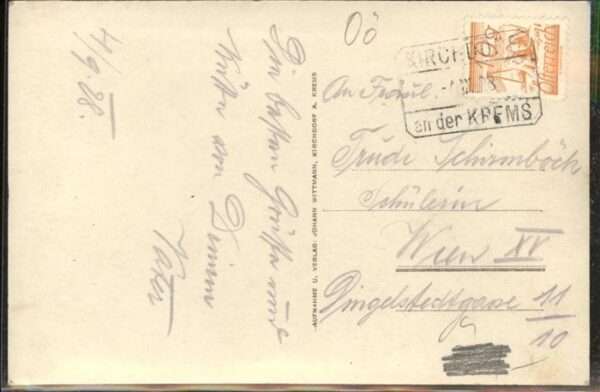 4/9.28.
Die besten Grüße und
Küsse von Deinem
Vater
AUFNAHME U. VERLAG: JOHANN WITTMANN, KIRCHDORF A. KREMS
OÖ
KIRCHDORF
an der KREMS
An Fräul.
Trude Schirmböck
Schülerin
Wien XV
Dingelstedtgasse 11
10